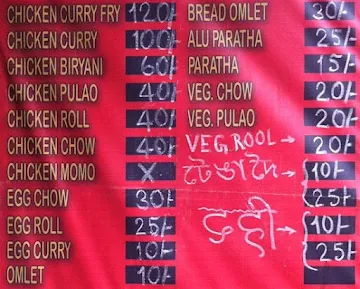 CHICKEN CURRY FRY 120/-
CHICKEN CURRY 100/-
CHICKEN BIRYANI 60/-
CHICKEN PULAO 40/-
CHICKEN ROLL 40/-
CHICKEN CHOW 40/-
CHICKEN MOMO X
EGG CHOW 30/-
EGG ROLL 25/-
EGG CURRY 10/-
OMLET 10/-
BREAD OMLET 30/-
ALU PARATHA 25/-
PARATHA 15/-
VEG. CHOW 20/-
VEG. PULAO 20/-
VEG, ROOL → 20/-
10/-
25/-
दही 10/-
25/-